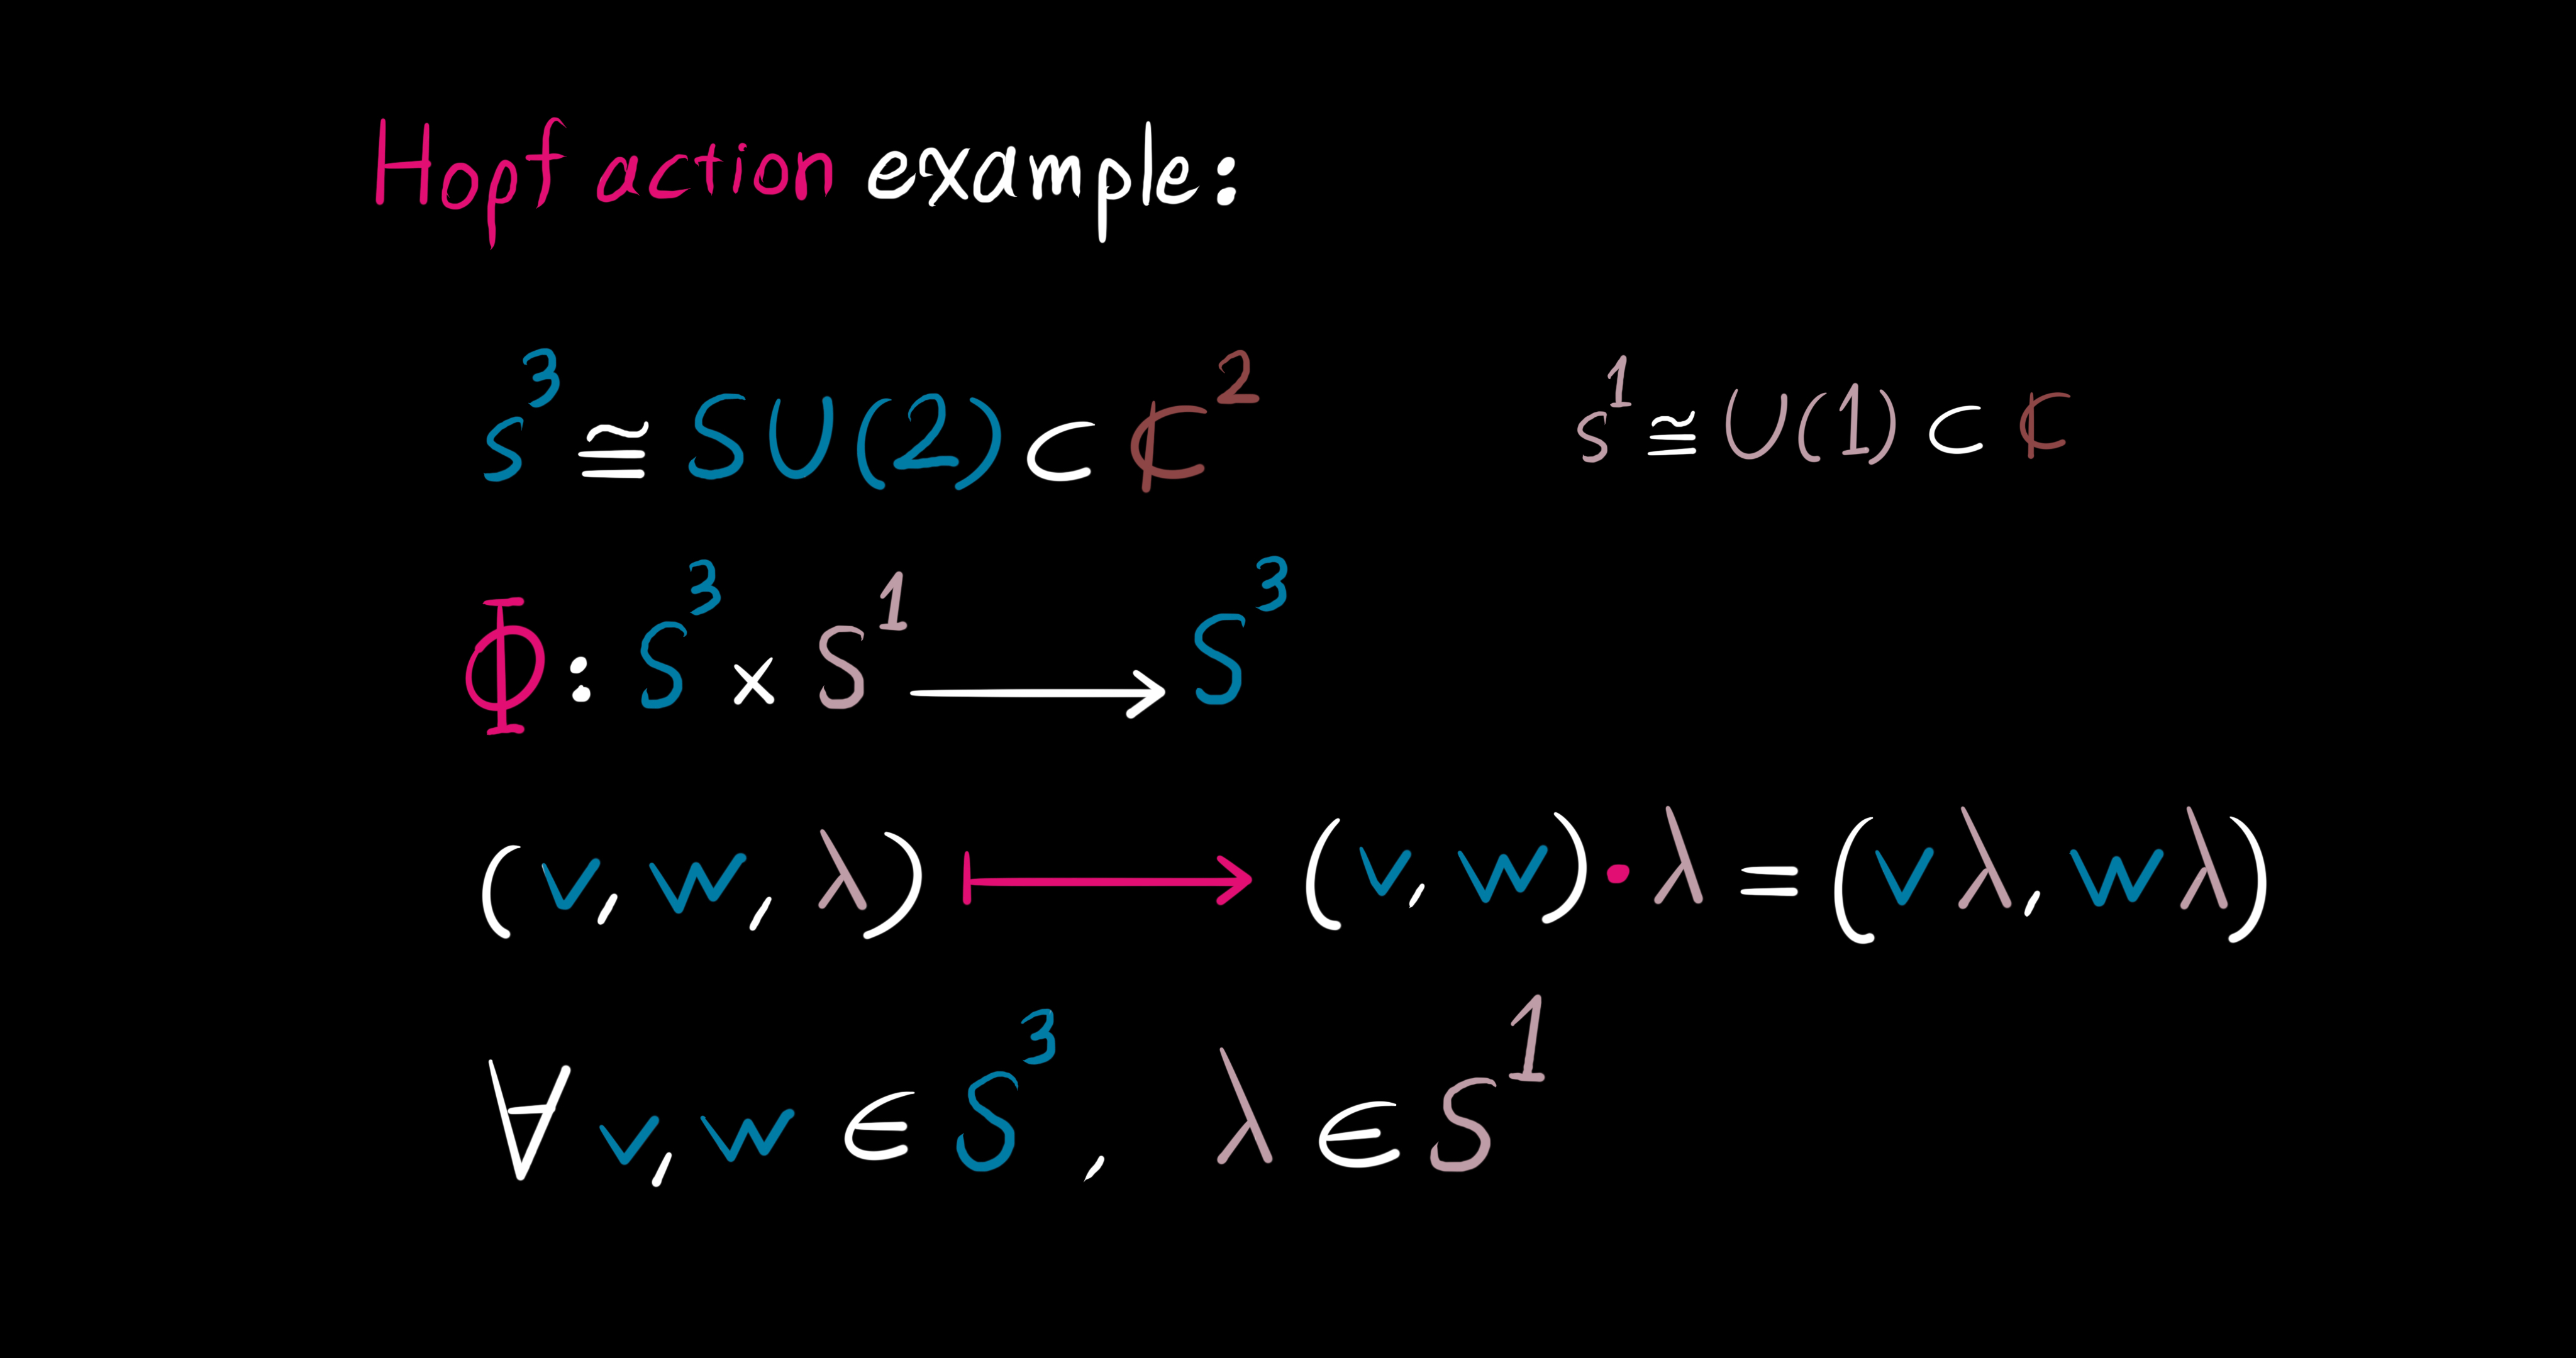 Hopf action example:
S³ ≅ SU(2) ⊂ ℂ² S¹ ≅ U(1) ⊂ ℂ
Φ: S³ × S¹ ⟶ S³
(v, w, λ) ⟼ (v, w)·λ = (vλ, wλ)
∀ v, w ∈ S³, λ ∈ S¹